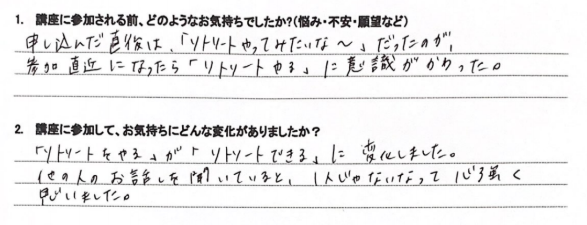 1. 講座に参加される前、どのようなお気持ちでしたか?(悩み・不安・願望など)
申し込んだ直後は、「リトリートやってみたいな〜」だったのが、
参加直近になったら「リトリートやる」に意識がかわった。
2. 講座に参加して、お気持ちにどんな変化がありましたか?
「リトリートをやる」が「リトリートできる」に変化しました。
他の人のお話しを聞いていると、1人じゃないなって心強く
思いました。